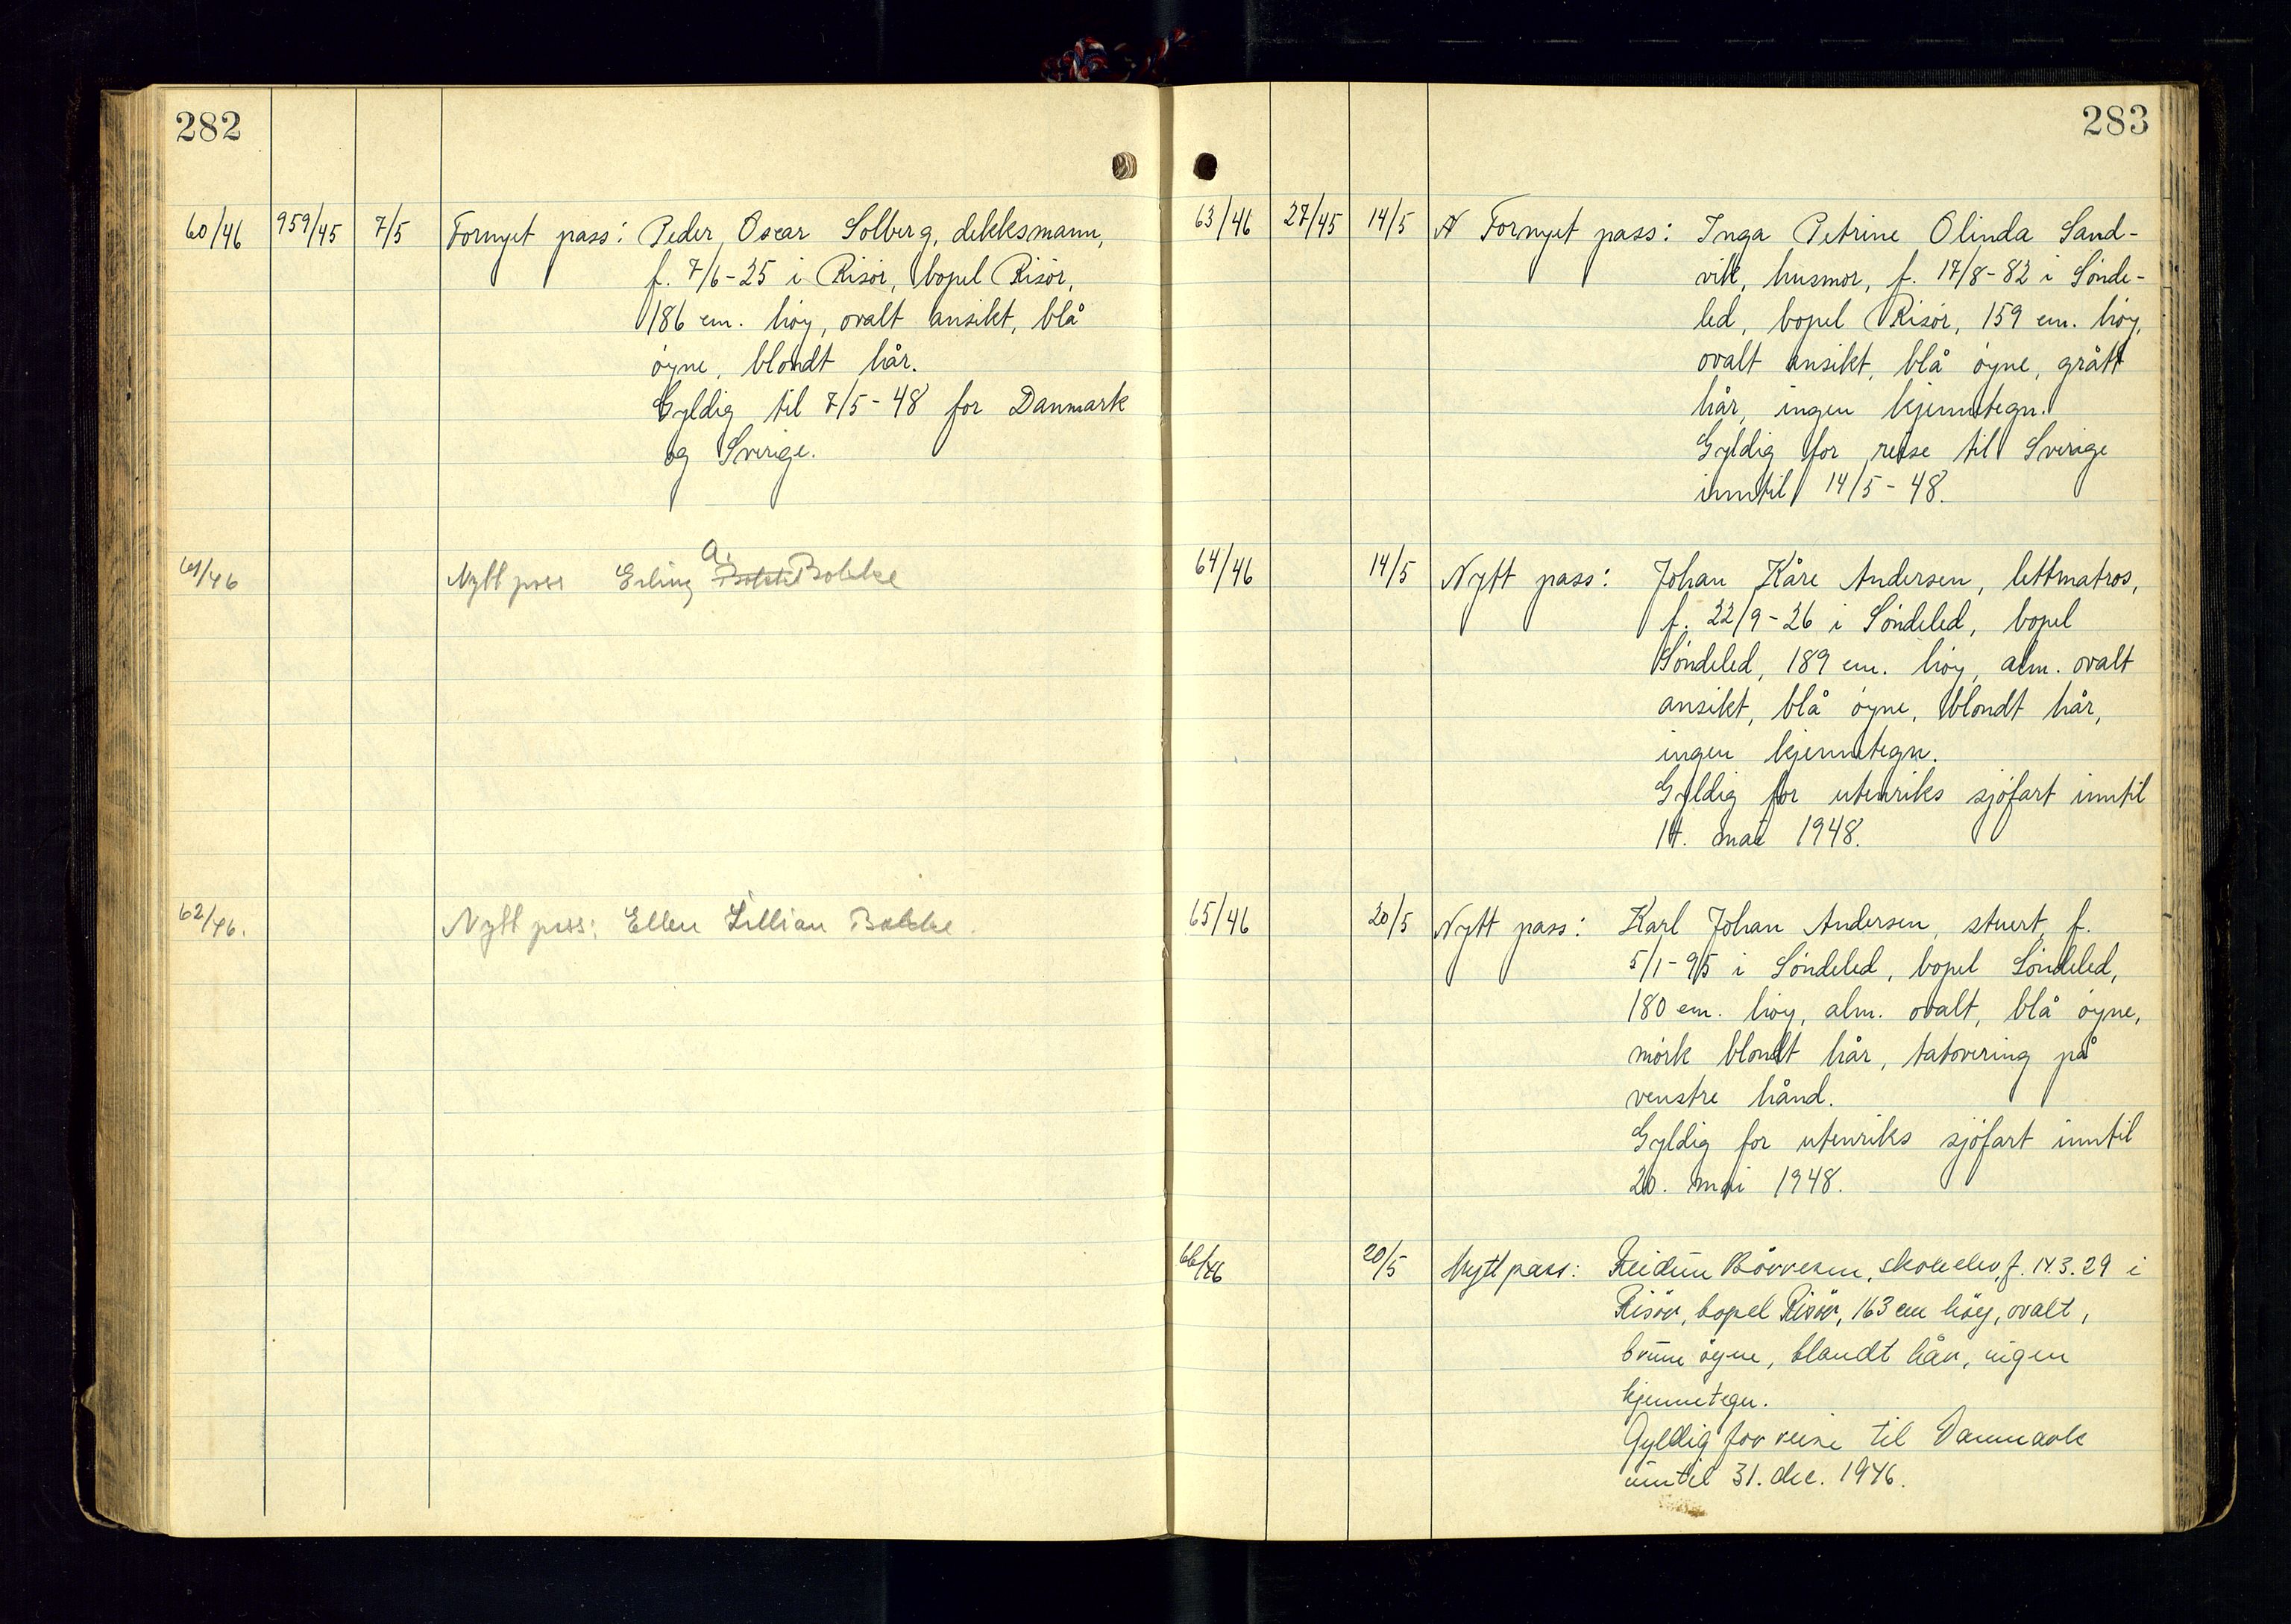 282
60/46 959/45 7/5 Fornyet pass: Peder Oscar Solberg, dekksmann,
f. 7/6-25 i Risör, bopel Risör,
186 cm. höy, ovalt ansikt, blå
öyne, blondt hår.
Gyldig til 7/5-48 for Danmark
og Sverige.
61/46 Nytt pass Erling A. Bakke
62/46. Nytt pass: Ellen Lillian Bakke.
283
63/46 27/45 14/5 Fornyet pass: Inga Petrine Olinda Sand-
vik, husmor, f. 17/8-82 i Sönde-
led, bopel Risör, 159 cm. höy,
ovalt ansikt, blå öyne, grått
hår, ingen kjennetegn.
Gyldig for reise til Sverige
inntil 14/5-48.
64/46 14/5 Nytt pass: Johan Kåre Andersen, lettmatros,
f. 22/9-26 i Söndeled, bopel
Söndeled, 189 cm. höy, alm. ovalt
ansikt, blå öyne, blondt hår,
ingen kjennetegn.
Gyldig for utenriks sjöfart inntil
14. mai 1948.
65/46 20/5 Nytt pass: Karl Johan Andersen, stuert, f.
5/1-95 i Söndeled, bopel Söndeled,
180 cm. höy, alm. ovalt, blå öyne,
mörk blondt hår, tatovering på
venstre hånd.
Gyldig for utenriks sjöfart inntil
20. mai 1948.
66/46 20/5 Nytt pass: Reidun Börresen, skoleelev, f. 14.3.29 i
Risör, bopel Risör, 163 cm höy, ovalt,
brune öyne, blondt hår, ingen
kjennetegn.
Gyldig for reise til Danmark
inntil 31. dec. 1946.